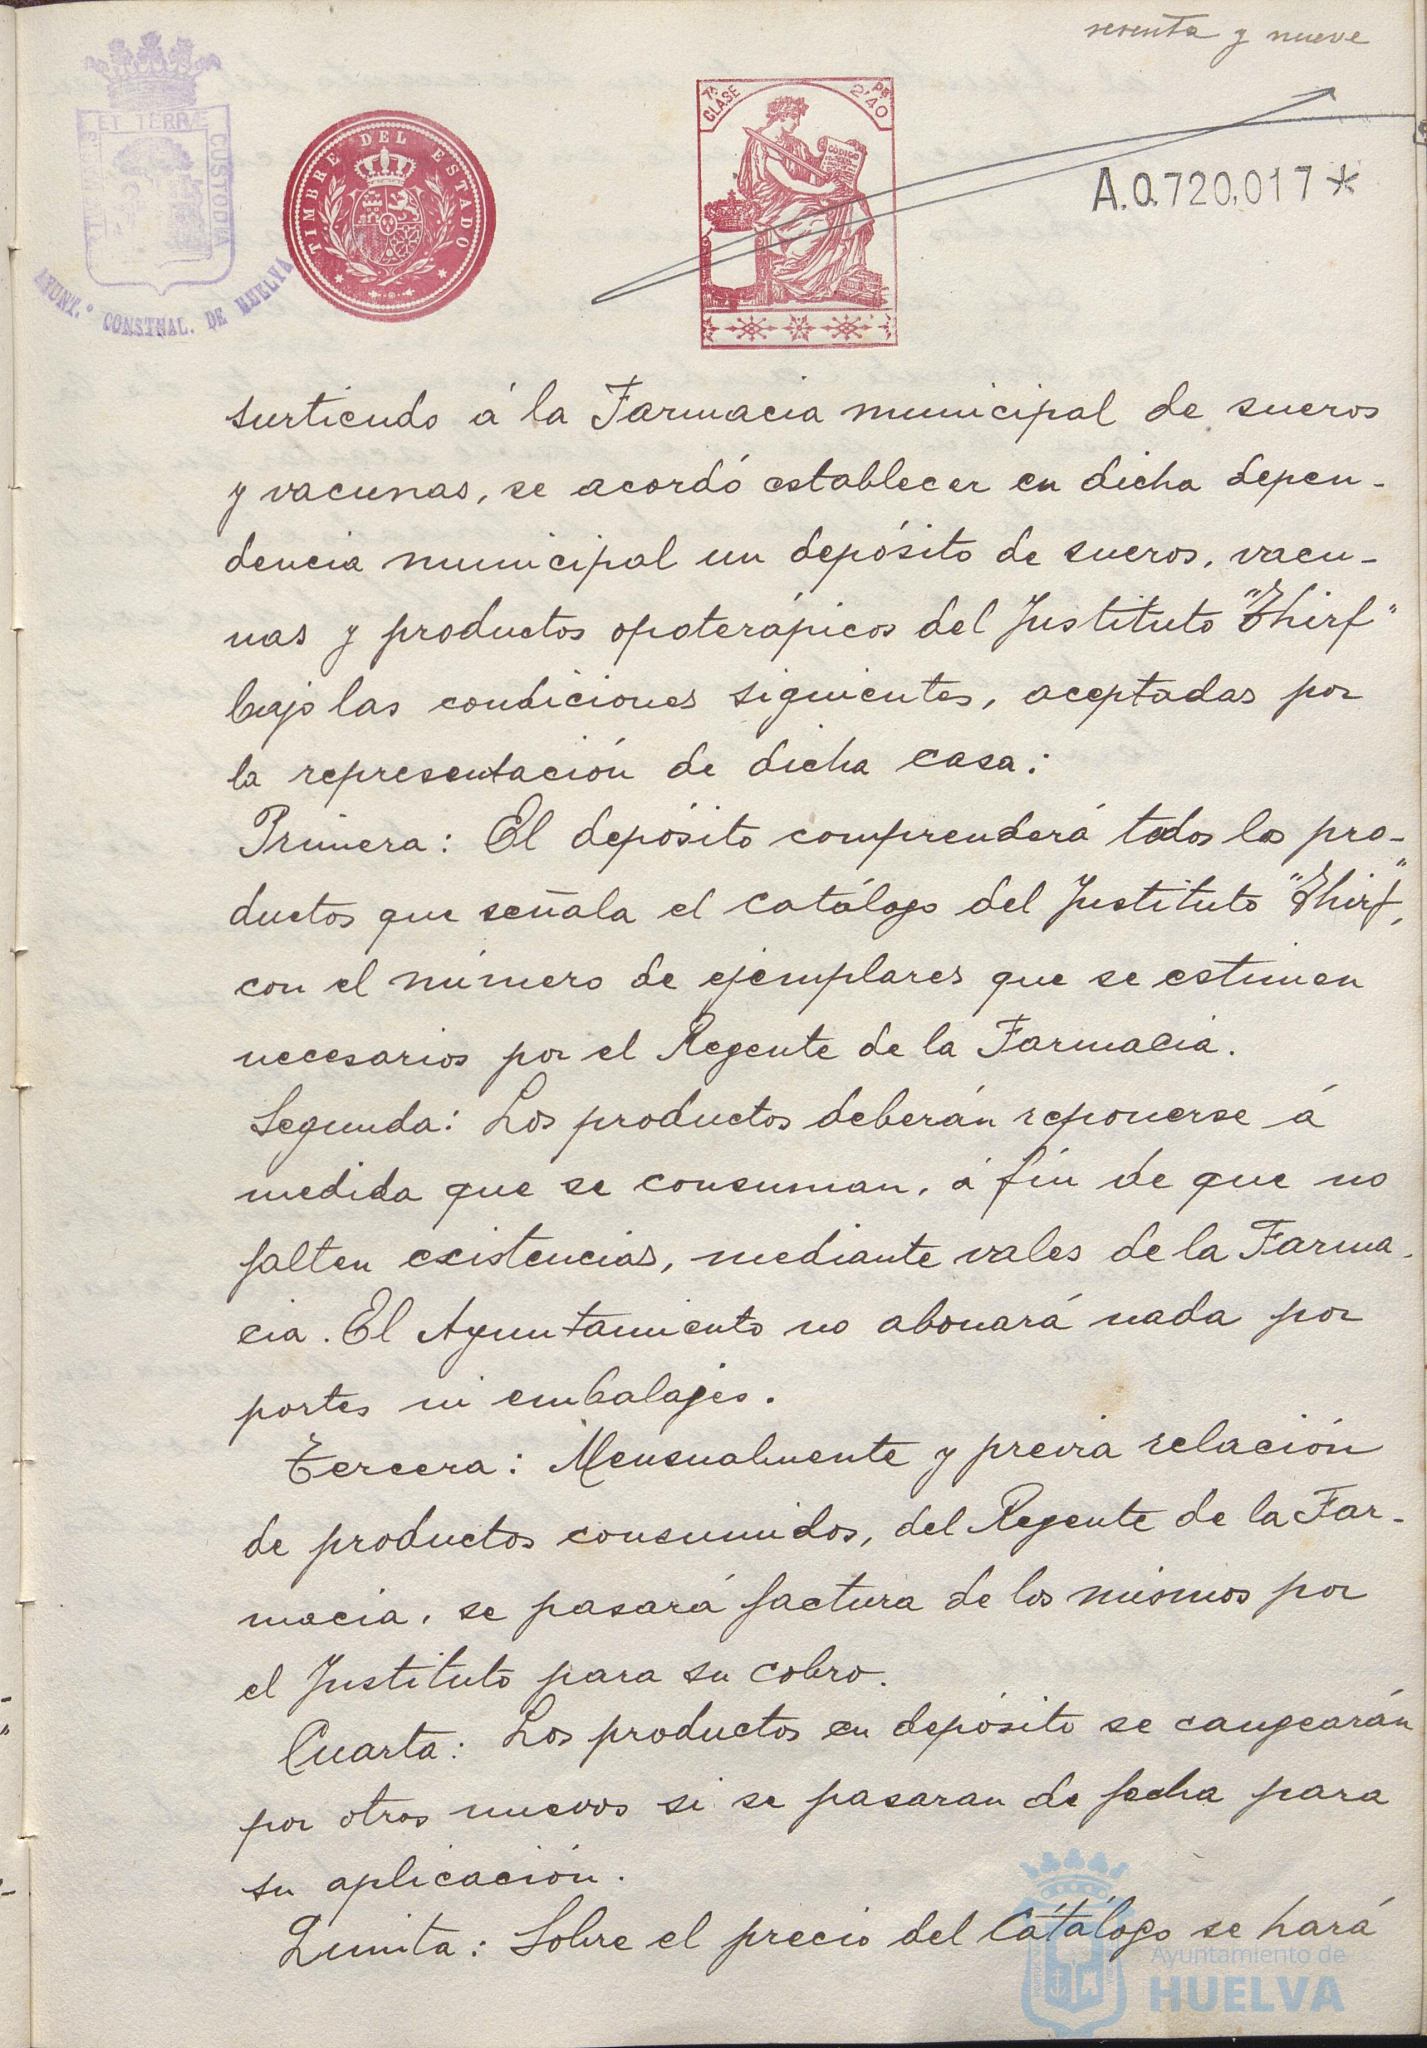 sesenta y nueve
ET TERRÆ
CUSTODIA
AYUNT.º CONSTNAL. DE HUELVA
TIMBRE DEL ESTADO
7ª CLASE
Ps 2'40
CÓDIGO
A.0.720,017*
surtiendo á la Farmacia municipal de sueros
y vacunas, se acordó establecer en dicha depen-
dencia municipal un depósito de sueros, vacu-
nas y productos opoterápicos del Instituto "Thirf"
bajo las condiciones siguientes, aceptadas por
la representación de dicha casa:
Primera: El depósito comprenderá todos los pro-
ductos que señala el catálogo del Instituto "Thirf",
con el número de ejemplares que se estimen
necesarios por el Regente de la Farmacia.
Segunda: Los productos deberán reponerse á
medida que se consuman, á fin de que no
falten existencias, mediante vales de la Farma-
cia. El Ayuntamiento no abonará nada por
portes ni embalajes.
Tercera: Mensualmente y previa relación
de productos consumidos, del Regente de la Far-
macia, se pasará factura de los mismos por
el Instituto para su cobro.
Cuarta: Los productos en depósito se cangearán
por otros nuevos si se pasaran de fecha para
su aplicación.
Quinta: Sobre el precio del Catálogo se hará
Ayuntamiento de
HUELVA